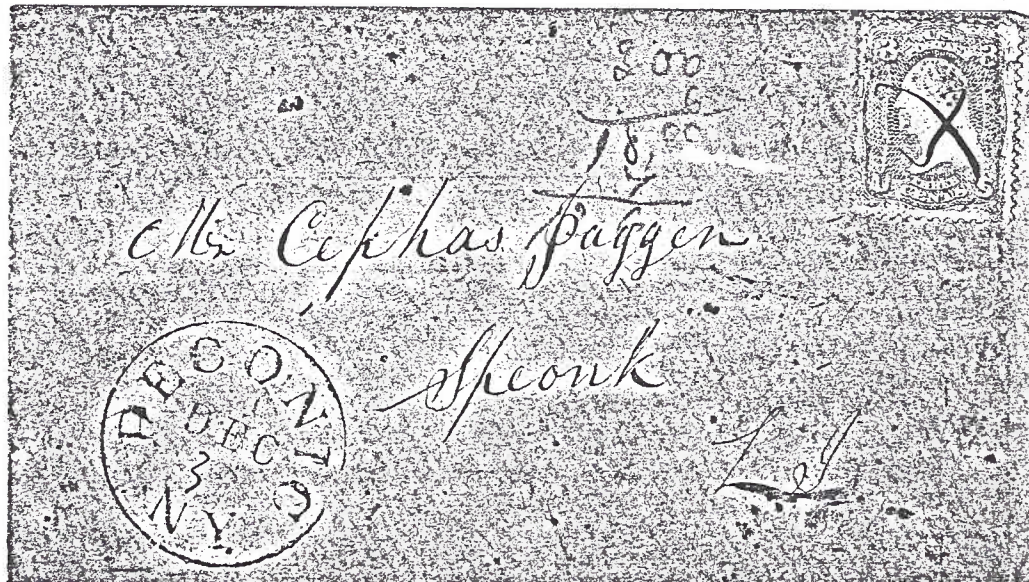 3 00
6
18 00
Mr Cephas Jagger
Speonk
L I
PECONIC
DEC
3
NY.
3 3